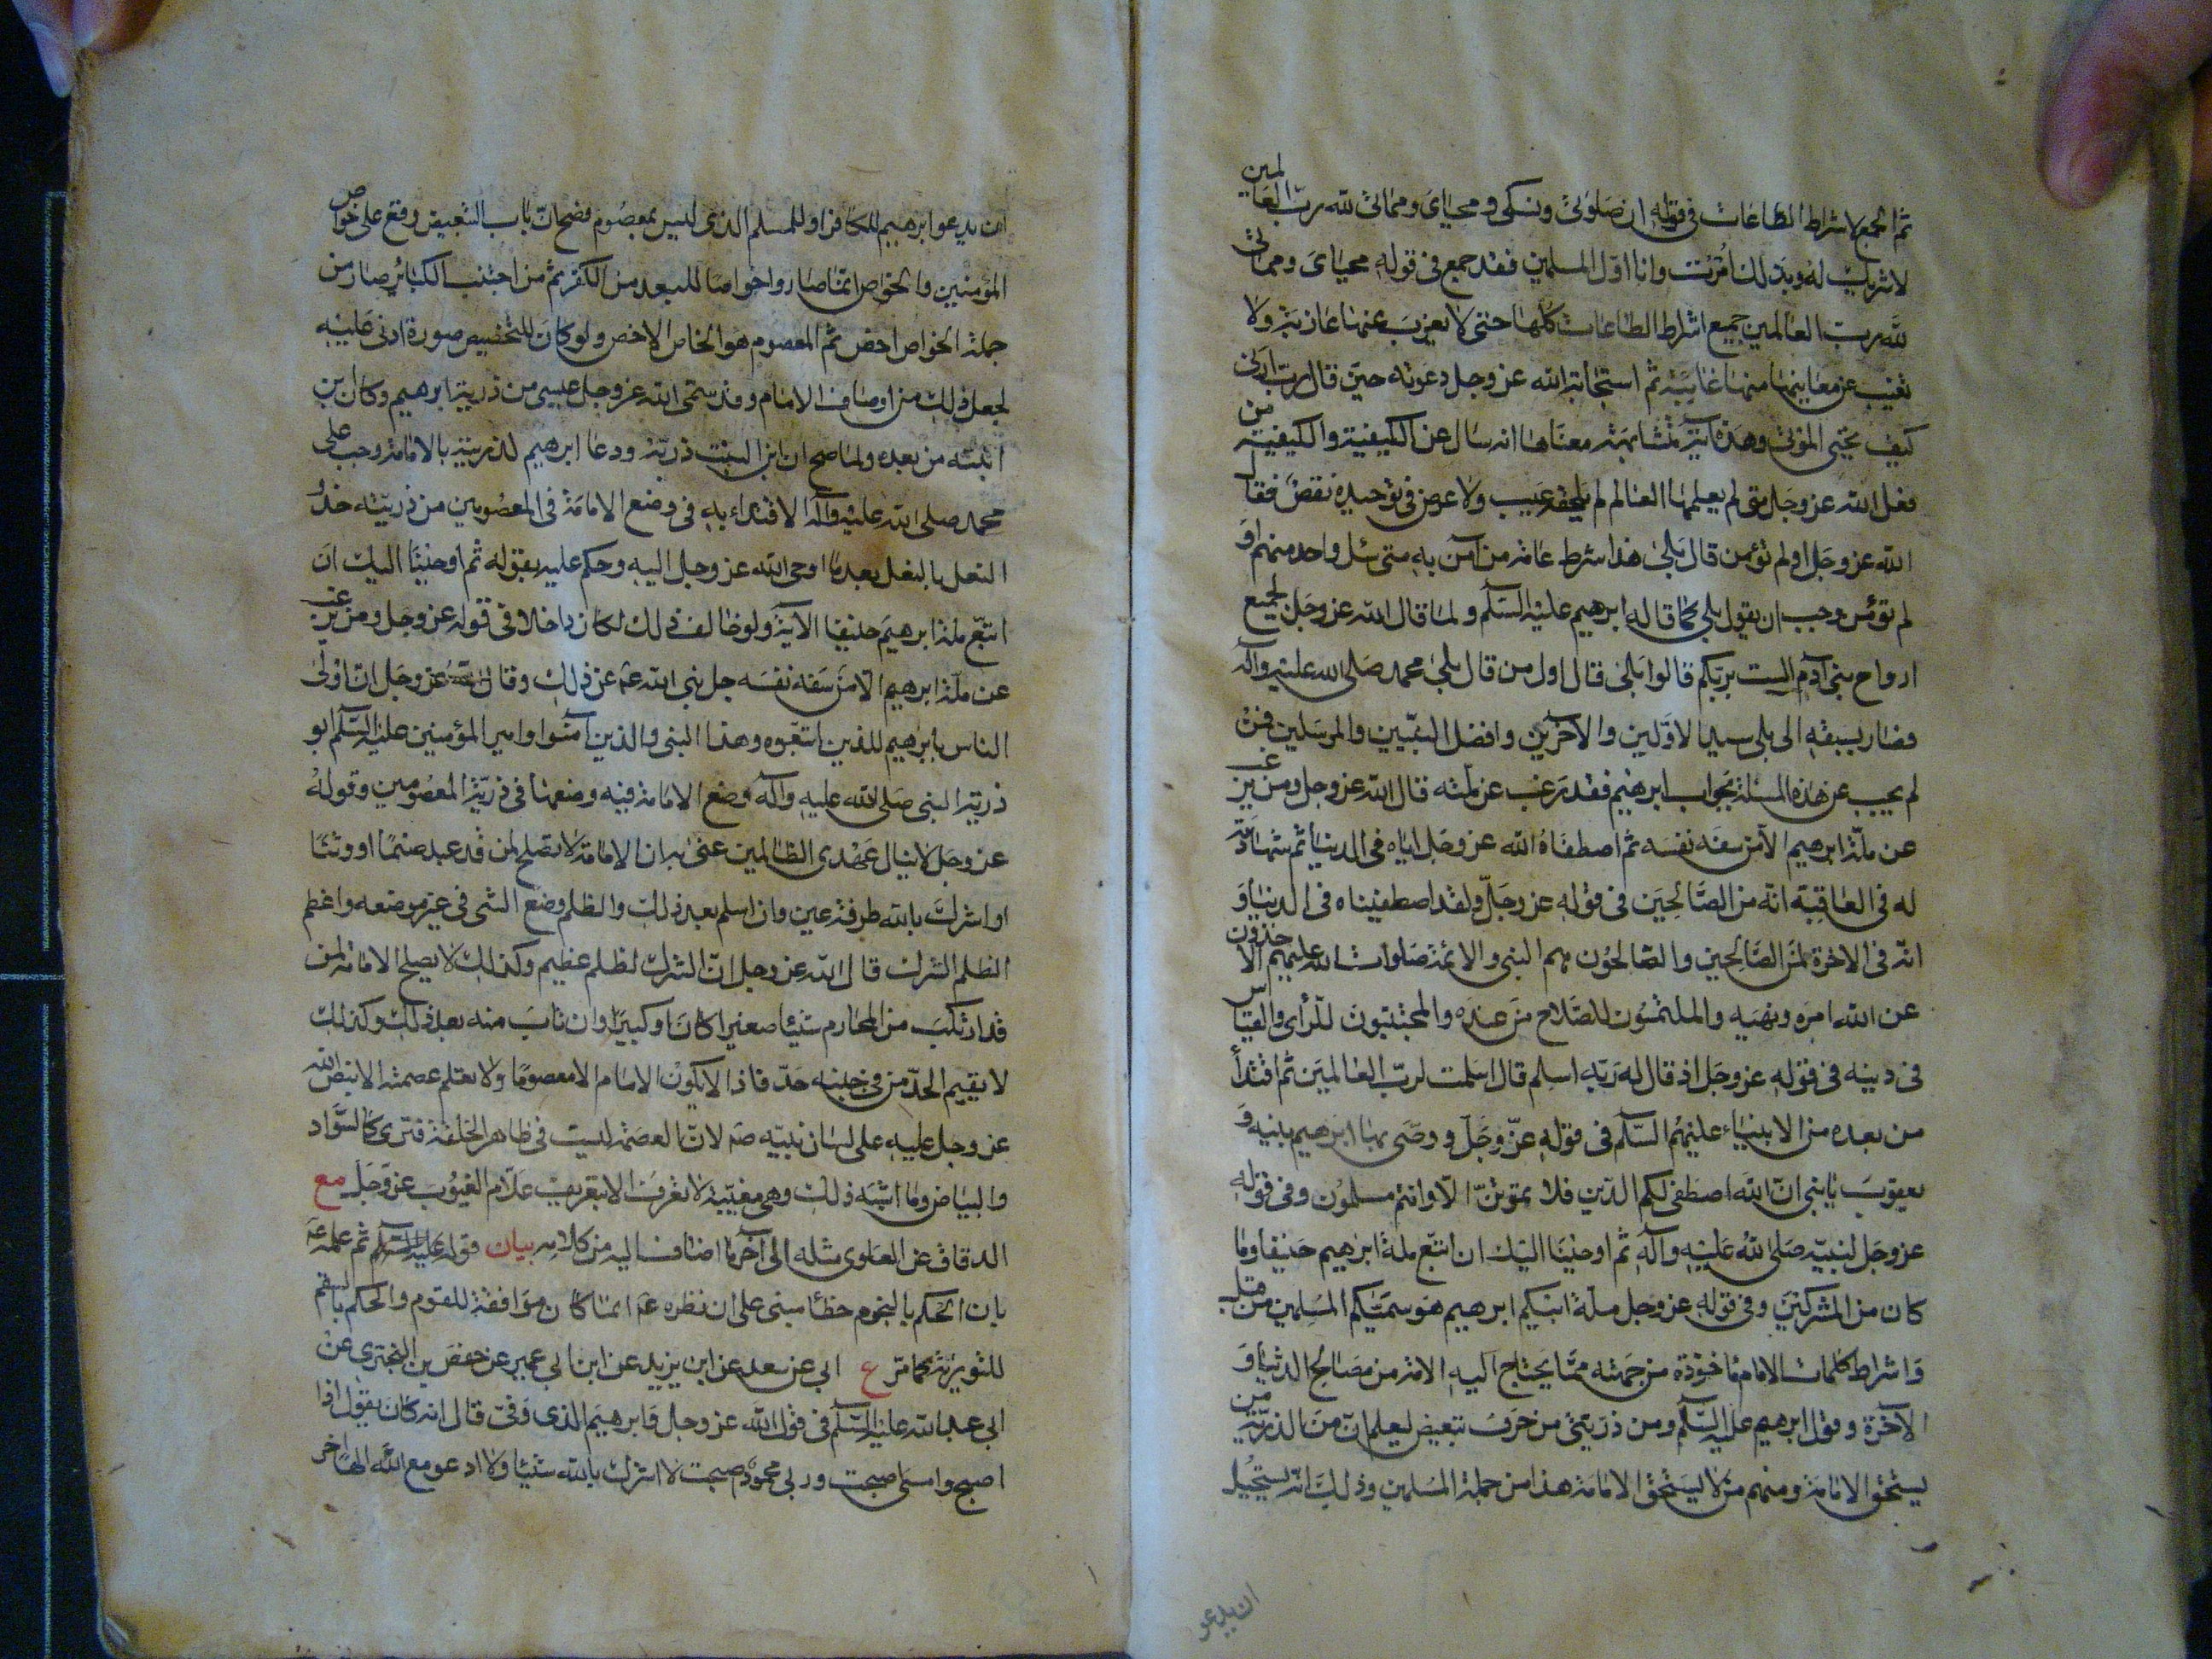 ثم الجمع لاشراط الطاعات في قوله ان صلوتي ونسكي ومحياي ومماتي لله رب العالمين
لا شريك له وبذلك امرت وانا اول المسلمين فقد جمع في قوله محياي ومماتي
لله رب العالمين جميع اشراط الطاعات كلها حتى لا يعزب عنها عازبة ولا
تغيب عن معانيها منها غائبة ثم استجابة الله عز وجل دعوته حين قال رب ارني
كيف تحيي الموتى وهذه آية متشابهة معناها انه سال عن الكيفية والكيفية من
فعل الله عز وجل متى لم يعلمها العالم لم يلحقه عيب ولا عرض في توحيده نقص فقال
الله عز وجل اولم تؤمن قال بلى هذا شرط عامة من آمن به متى سئل واحد منهم او
لم تؤمن وجب ان يقول بلى كما قال ابرهيم عليه السلم ولما قال الله عز وجل لجميع
ارواح بني آدم الست بربكم قالوا بلى قال اول من قال بلى محمد صلى الله عليه وآله
فصار بسبقه الى بلى سيد الاولين والآخرين وافضل النبيين والمرسلين فمن
لم يجب عن هذه المسئلة بجواب ابرهيم فقد رغب عن ملته قال الله عز وجل ومن يرغب
عن ملة ابرهيم الا من سفه نفسه ثم اصطفاه الله عز وجل اياه في الدنيا ثم شهادته
له في العاقبة انه من الصالحين في قوله عز وجل ولقد اصطفيناه في الدنيا و
انه في الاخرة لمن الصالحين والصالحون هم النبي والائمة صلوات الله عليهم الآخذون
عن الله امره ونهيه والملتمسون للصلاح من عنده والمجتنبون للرأي والقياس
في دينه في قوله عز وجل اذ قال له ربه اسلم قال اسلمت لرب العالمين ثم اقتداء
من بعده من الانبياء عليهم السلم في قوله عز وجل ووصى بها ابرهيم بنيه و
يعقوب يا بني ان الله اصطفى لكم الدين فلا تموتن الا وانتم مسلمون وفي قوله
عز وجل لنبيه صلى الله عليه وآله ثم اوحينا اليك ان اتبع ملة ابرهيم حنيفا وما
كان من المشركين وفي قوله عز وجل ملة ابيكم ابرهيم هو سميكم المسلمين من قبل
واشراط كلمات الامام ماخوذة من جهته مما يحتاج اليه الامة من مصالح الدنيا و
الآخرة وقول ابرهيم عليه السلم ومن ذريتي من حرف تبعيض ليعلم ان من الذرية من
يستحق الامامة ومنهم من لا يستحق الامامة هذا من جملة المسلمين وذلك انه يستحيل
ان يدعو
ان يدعو ابرهيم للكافر او للمسلم الذي ليس بمعصوم فصح ان باب التبعيض وقع على خواص
المؤمنين والخواص انما صاروا خواصا للبعد من الكفر ثم من اجتنب الكبائر صار من
جملة الخواص اخص ثم المعصوم هو الخاص الاخص ولو كان للتخصيص صورة ادنى عليه
لجعل ذلك من اوصاف الامام وقد سمى الله عز وجل عيسى من ذرية ابرهيم وكان ابن
ابنته من بعده ولما صح ان ابن البنت ذرية ودعا ابرهيم لذريته بالامامة وجب على
محمد صلى الله عليه وآله الاقتداء به في وضع الامامة في المعصومين من ذريته حذو
النعل بالنعل بعد ما اوحى الله عز وجل اليه وحكم عليه بقوله ثم اوحينا اليك ان
اتبع ملة ابرهيم حنيفا الآية ولو خالف ذلك لكان داخلا في قوله عز وجل ومن يرغب
عن ملة ابرهيم الا من سفه نفسه جل نبي الله عم عن ذلك وقال الله عز وجل ان اولى
الناس بابرهيم للذين اتبعوه وهذا النبي والذين آمنوا وامير المؤمنين عليه السلم ابو
ذرية النبي صلى الله عليه وآله وضع الامامة فيه وضعها في ذرية المعصومين وقوله
عز وجل لا ينال عهدي الظالمين عنى به ان الامامة لا تصلح لمن قد عبد صنما او وثنا
او اشرك بالله طرفة عين وان اسلم بعد ذلك والظلم وضع الشي في غير موضعه واعظم
الظلم الشرك قال الله عز وجل ان الشرك لظلم عظيم وكذلك لا يصلح الامامة لمن
قد ارتكب من المحارم شيئا صغيرا كان او كبيرا وان تاب منه بعد ذلك وكذلك
لا يقيم الحد من في جنبه حد فاذا لا يكون الامام الا معصوما ولا يعلم عصمته الا بنص الله
عز وجل عليه على لسان نبيه صم لان العصمة ليست في ظاهر الخلقة فترى كالسواد
والبياض وما اشبه ذلك وهي مغيبة لا تعرف الا بتعريف علام الغيوب عز وجل مع
الدقاق عن العلوي مثله الى آخر ما اضاف اليه من كلامه بيان قوله عليه السلم ثم علمه عم
بان الحكم بالنجوم خطأ مبني على ان نظره عم انما كان موافقة للقوم والحكم بالسقم
للتورية كما مر ع ابي عن سعد عن ابن يزيد عن ابن ابي عمير عن حفص بن البختري عن
ابي عبد الله عليه السلم في قول الله عز وجل وابرهيم الذي وفى قال انه كان يقول اذا
اصبح وامسى اصبحت وربي محمود اصبحت لا اشرك بالله شيئا ولا ادعو مع الله الها آخر